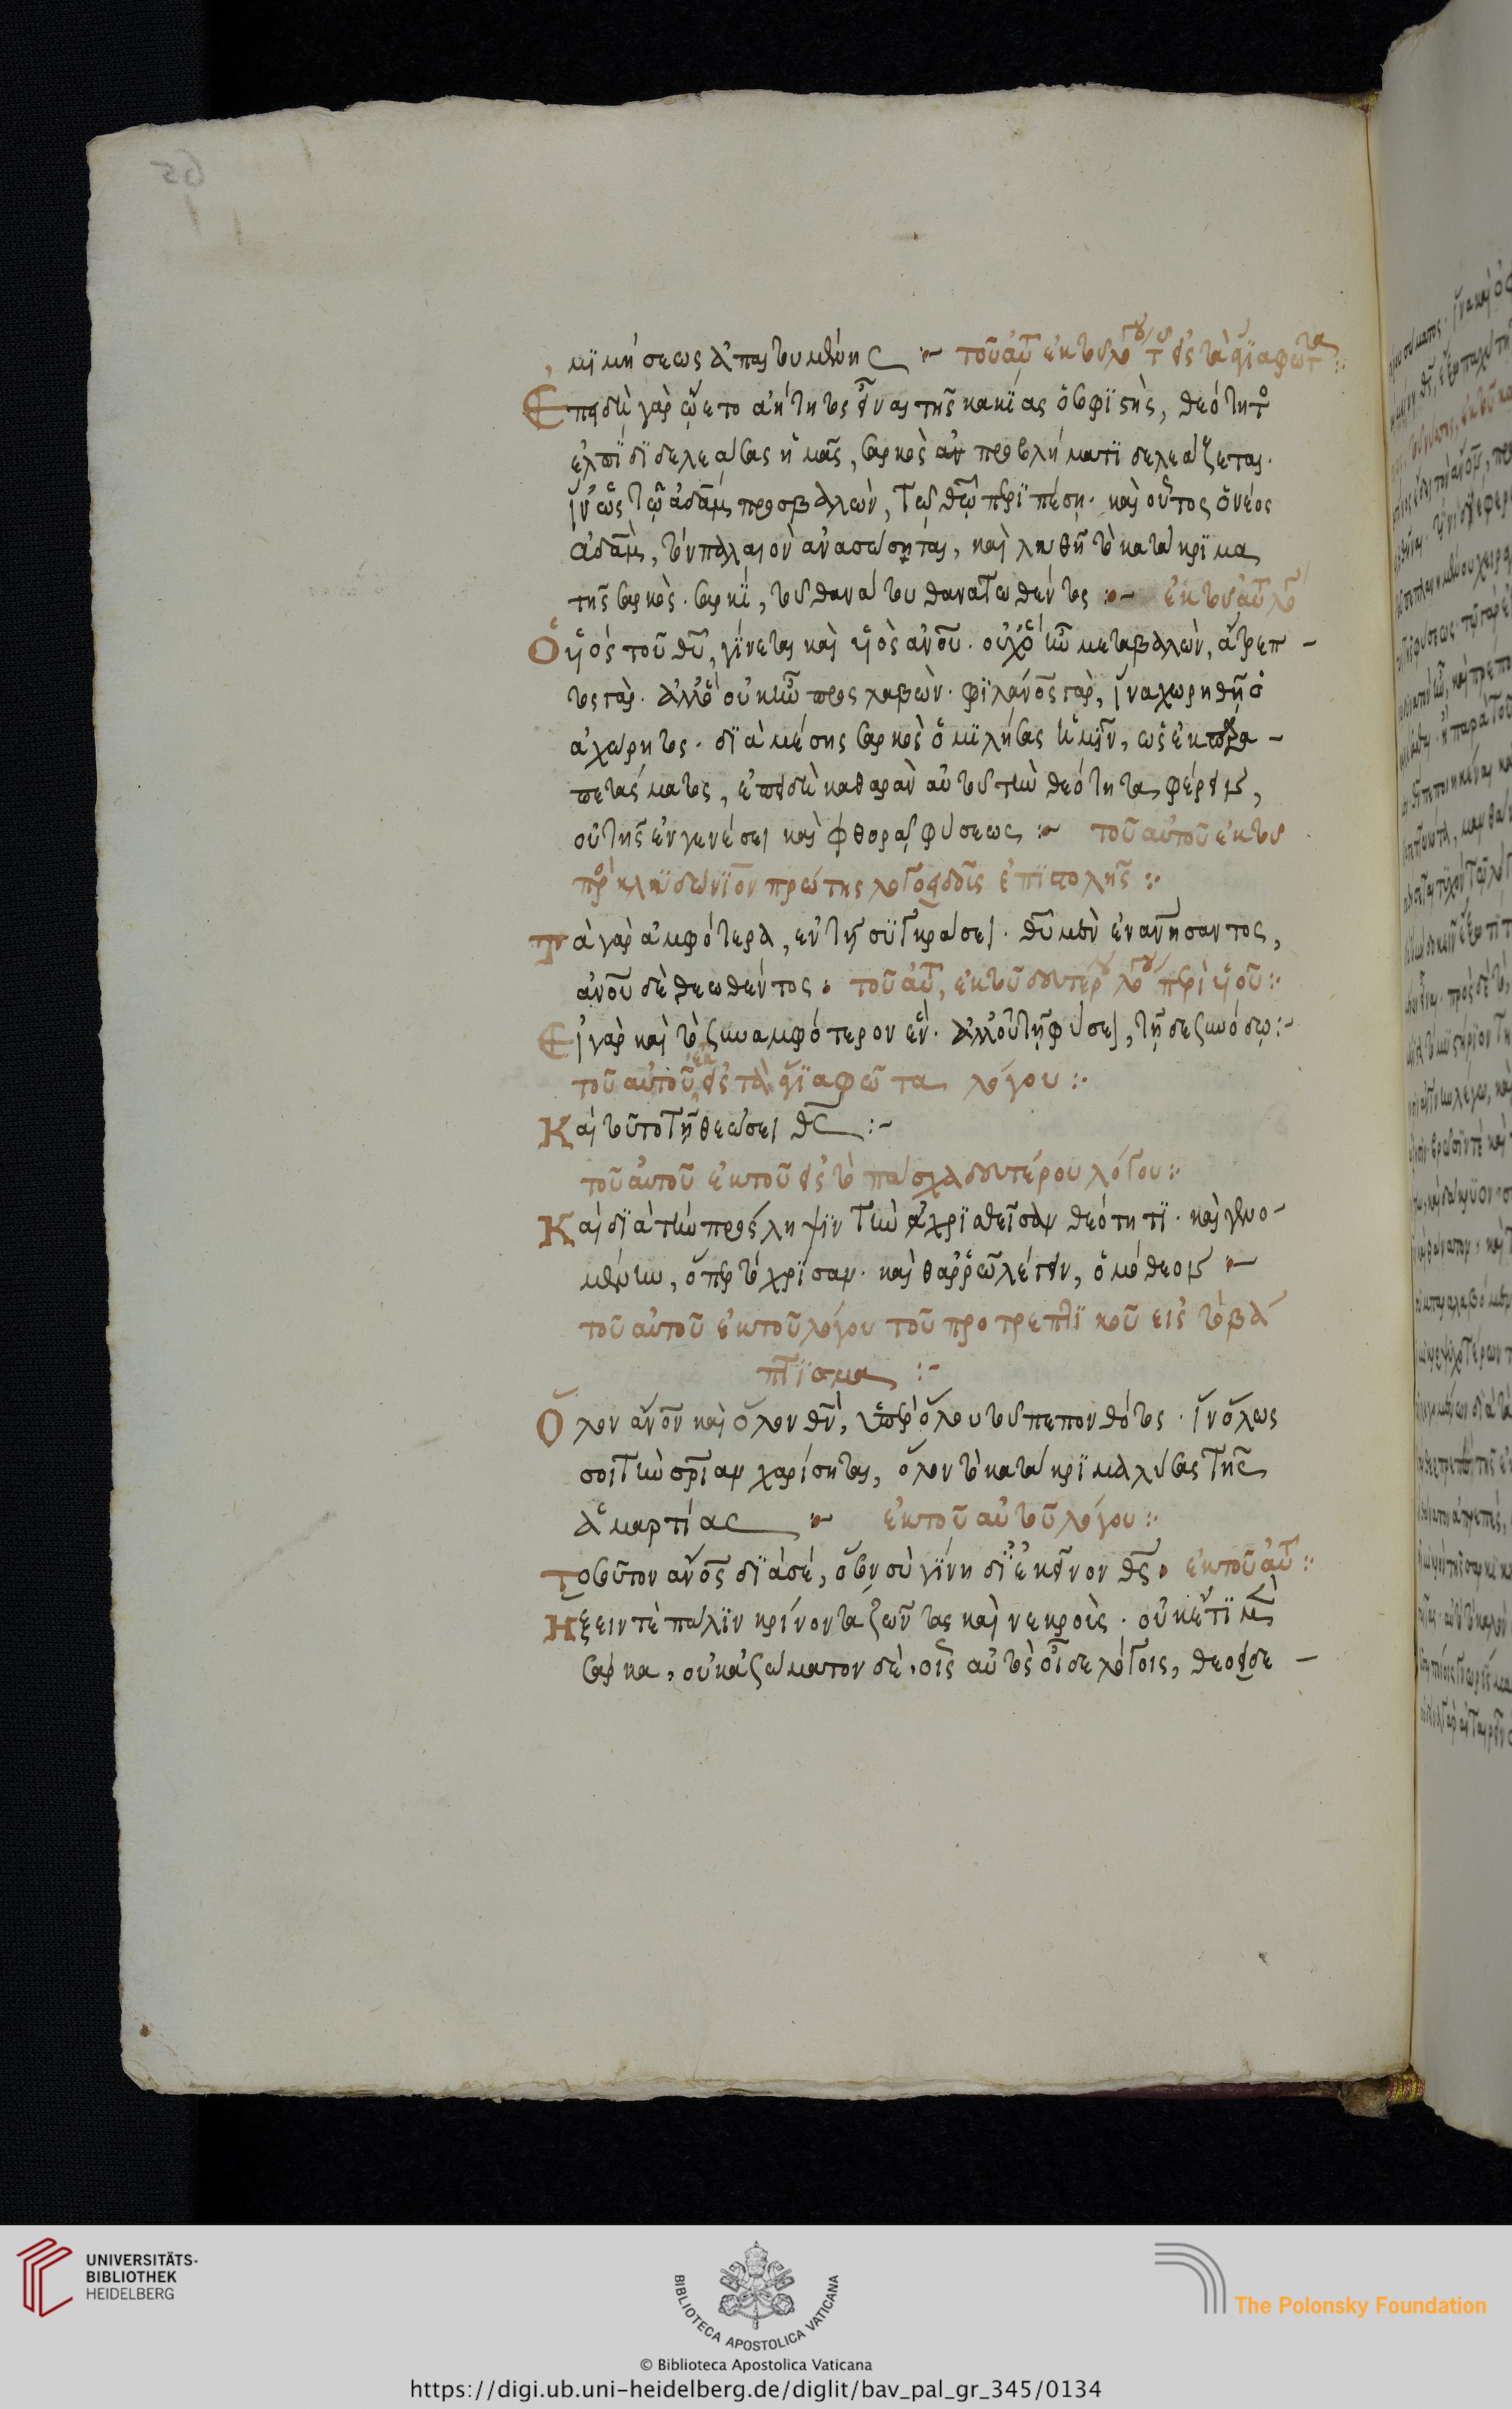 μϊμήσεως ἀπαιτουμένης :~ τοῦ αὐτ ἐκ τοῦ λό τ εἰς τὰ ἅγϊα φῶτα :
Επειδὴ γὰρ ᾤετο ἀήττητος εἶναι τῆς κακίας ὁ σοφϊστὴς, θεότητος
ἐλπίδϊ δελεάσας ἡμᾶς, σαρκὸς αὐ προβλήματϊ δελεάζεται.
ἵν' ὡς τῷ ἀδὰμ προσβαλὼν, τῷ θῶ περϊπέση. καὶ οὗτος ὁ νέος
ἀδὰμ, τὸν παλαιὸν ἀνασώσηται, καὶ λυθῆ τὸ κατάκρϊμα
τῆς σαρκὸς. σαρκϊ, τοῦ θανάτου θανατωθέντος :~ ἐκ τοῦ αὐτ λό
Ὁ ϋἱός τοῦ θῦ, γίνεται καὶ ϋἱὸς ἀνου. οὐχ ὃ ἦν μεταβαλὼν, ἄτρεπ-
τος γὰρ. ἀλλ' ὃ οὐκ ἦν προςλαβὼν. φϊλανος γὰρ, ἵνα χωρηθῆ ὁ
ἀχώρητος. δϊὰ μέσης σαρκὸς ὁμϊλήσας ἡμῖν, ὡς ἐκ παρα-
πετάσματος, ἐπειδὴ καθαρὰν αὐτοῦ τὴν θεότητα φέρειν,
οὐ τῆς ἐν γενέσει καὶ φθορᾷ φύσεως :~ τοῦ αὐτοῦ ἐκ τοῦ
πρ κληδώνϊον πρώτης λογοειδοῦς ἐπϊστολῆς :·
τὰ γὰρ ἀμφότερα, ἐν τῇ συϊγκράσει. θῦ μὲν ἐνανήσαντος,
ἀνου δὲ θεωθέντος. τοῦ αὐτ, ἐκ τοῦ δευτέρου λόγου περὶ ϋἱοῦ :·
Ει γὰρ καὶ τὸ ξυναμφότερον ἓν. ἀλλ' οὐ τῇ φύσει, τῇ δὲ ξυνόδω :~
τοῦ αὐτοῦ, ἐκ εἰς τὰ ἅγϊα φῶτα λόγου :·
Και τοῦτο τῇ θεώσει θς :~
τοῦ αὐτοῦ ἐκ τοῦ εἰς τὸ πάσχα δευτέρου λόγου :·
Και δϊὰ τὴν πρόςληψϊν τὴν χρϊσθεῖσαν θεότητϊ. καὶ γενο-
μένην, ὅπερ τὸ χρίσαν. καὶ θαρρῶ λέγειν, ὁμόθεον :~
τοῦ αὐτοῦ ἐκ τοῦ λόγου τοῦ προτρεπτϊκοῦ εἰς τὸ βά
πτϊσμα :~
Ὅλον ἄνον καὶ ὅλον θν, ὑπὲρ ὅλου τοῦ πεπονθότος. ἵν' ὅλως
σοι τὴν σρίαν χαρίσηται, ὅλον τὸ κατάκρϊμα λύσας τῆς
ἁμαρτίας :~ ἐκ τοῦ αὐτοῦ λόγου :·
τοσοῦτον ἄνος δϊὰ σέ, ὅσον σὺ γίνη δϊ' ἐκεῖνον θς. ἐκ τοῦ αὐτ :·
Ηξειν τὲ πάλϊν κρίνοντα ζῶντας καὶ νεκροὺς. οὐκέτϊ μὲν
σάρκα, οὐκ ἀσώματον δὲ, οἷς αὐτὸς οἶδε λόγοις, θεοειδε-
https://digi.ub.uni-heidelberg.de/diglit/bav_pal_gr_345/0134
UNIVERSITÄTS-
BIBLIOTHEK
HEIDELBERG
BIBLIOTECA APOSTOLICA VATICANA
© Biblioteca Apostolica Vaticana
The Polonsky Foundation